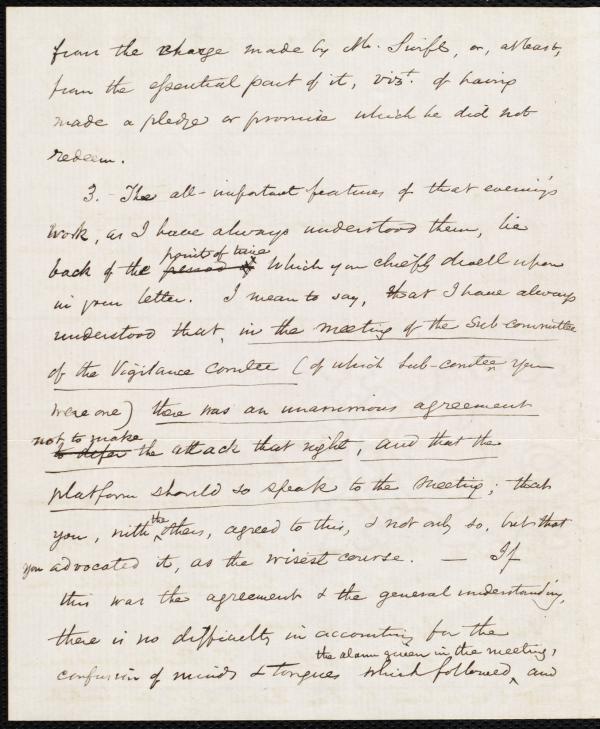 from the charge made by Mr. Swift, or, at least,
from the essential part of it, vizt. of having
made a pledge or promise which he did not
redeem.
3. The all-important features of that evening's
work, as I have always understood them, lie
point of time
back of the period which you chiefly dwell upon
in your letter. I mean to say, that I have always
understood that, in the meeting of the Sub-committee
of the Vigilance Comtee (of which Sub-comtee you
were one) there was an unanimous agreement
not to make
to defer the attack that night, and that the
platform should so speak to the meeting; that
you, with the others, agreed to this, & not only so, but that
you advocated it, as the wisest course. — If
this was the agreement & the general understanding,
there is no difficulty in accounting for the
the alarm given in the meeting,
confusion of minds & tongues which followed, and